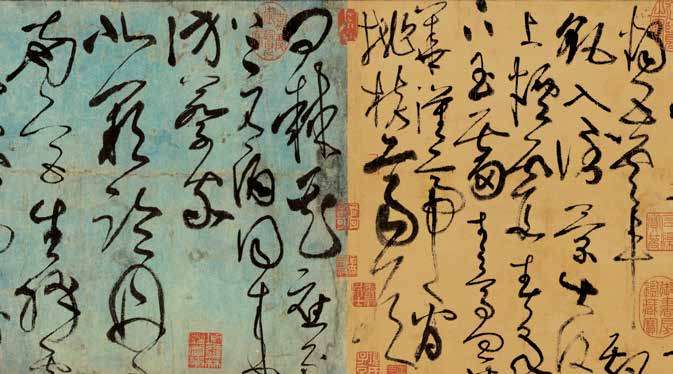 燭五雲車
飖入倒景出沒
上煙霞春泉
下玉霤青鳥向
華漢帝看
桃核齊侯
問棘花應逐
上元酒同來
訪蔡家
北闕臨丹
南宮生絳雲